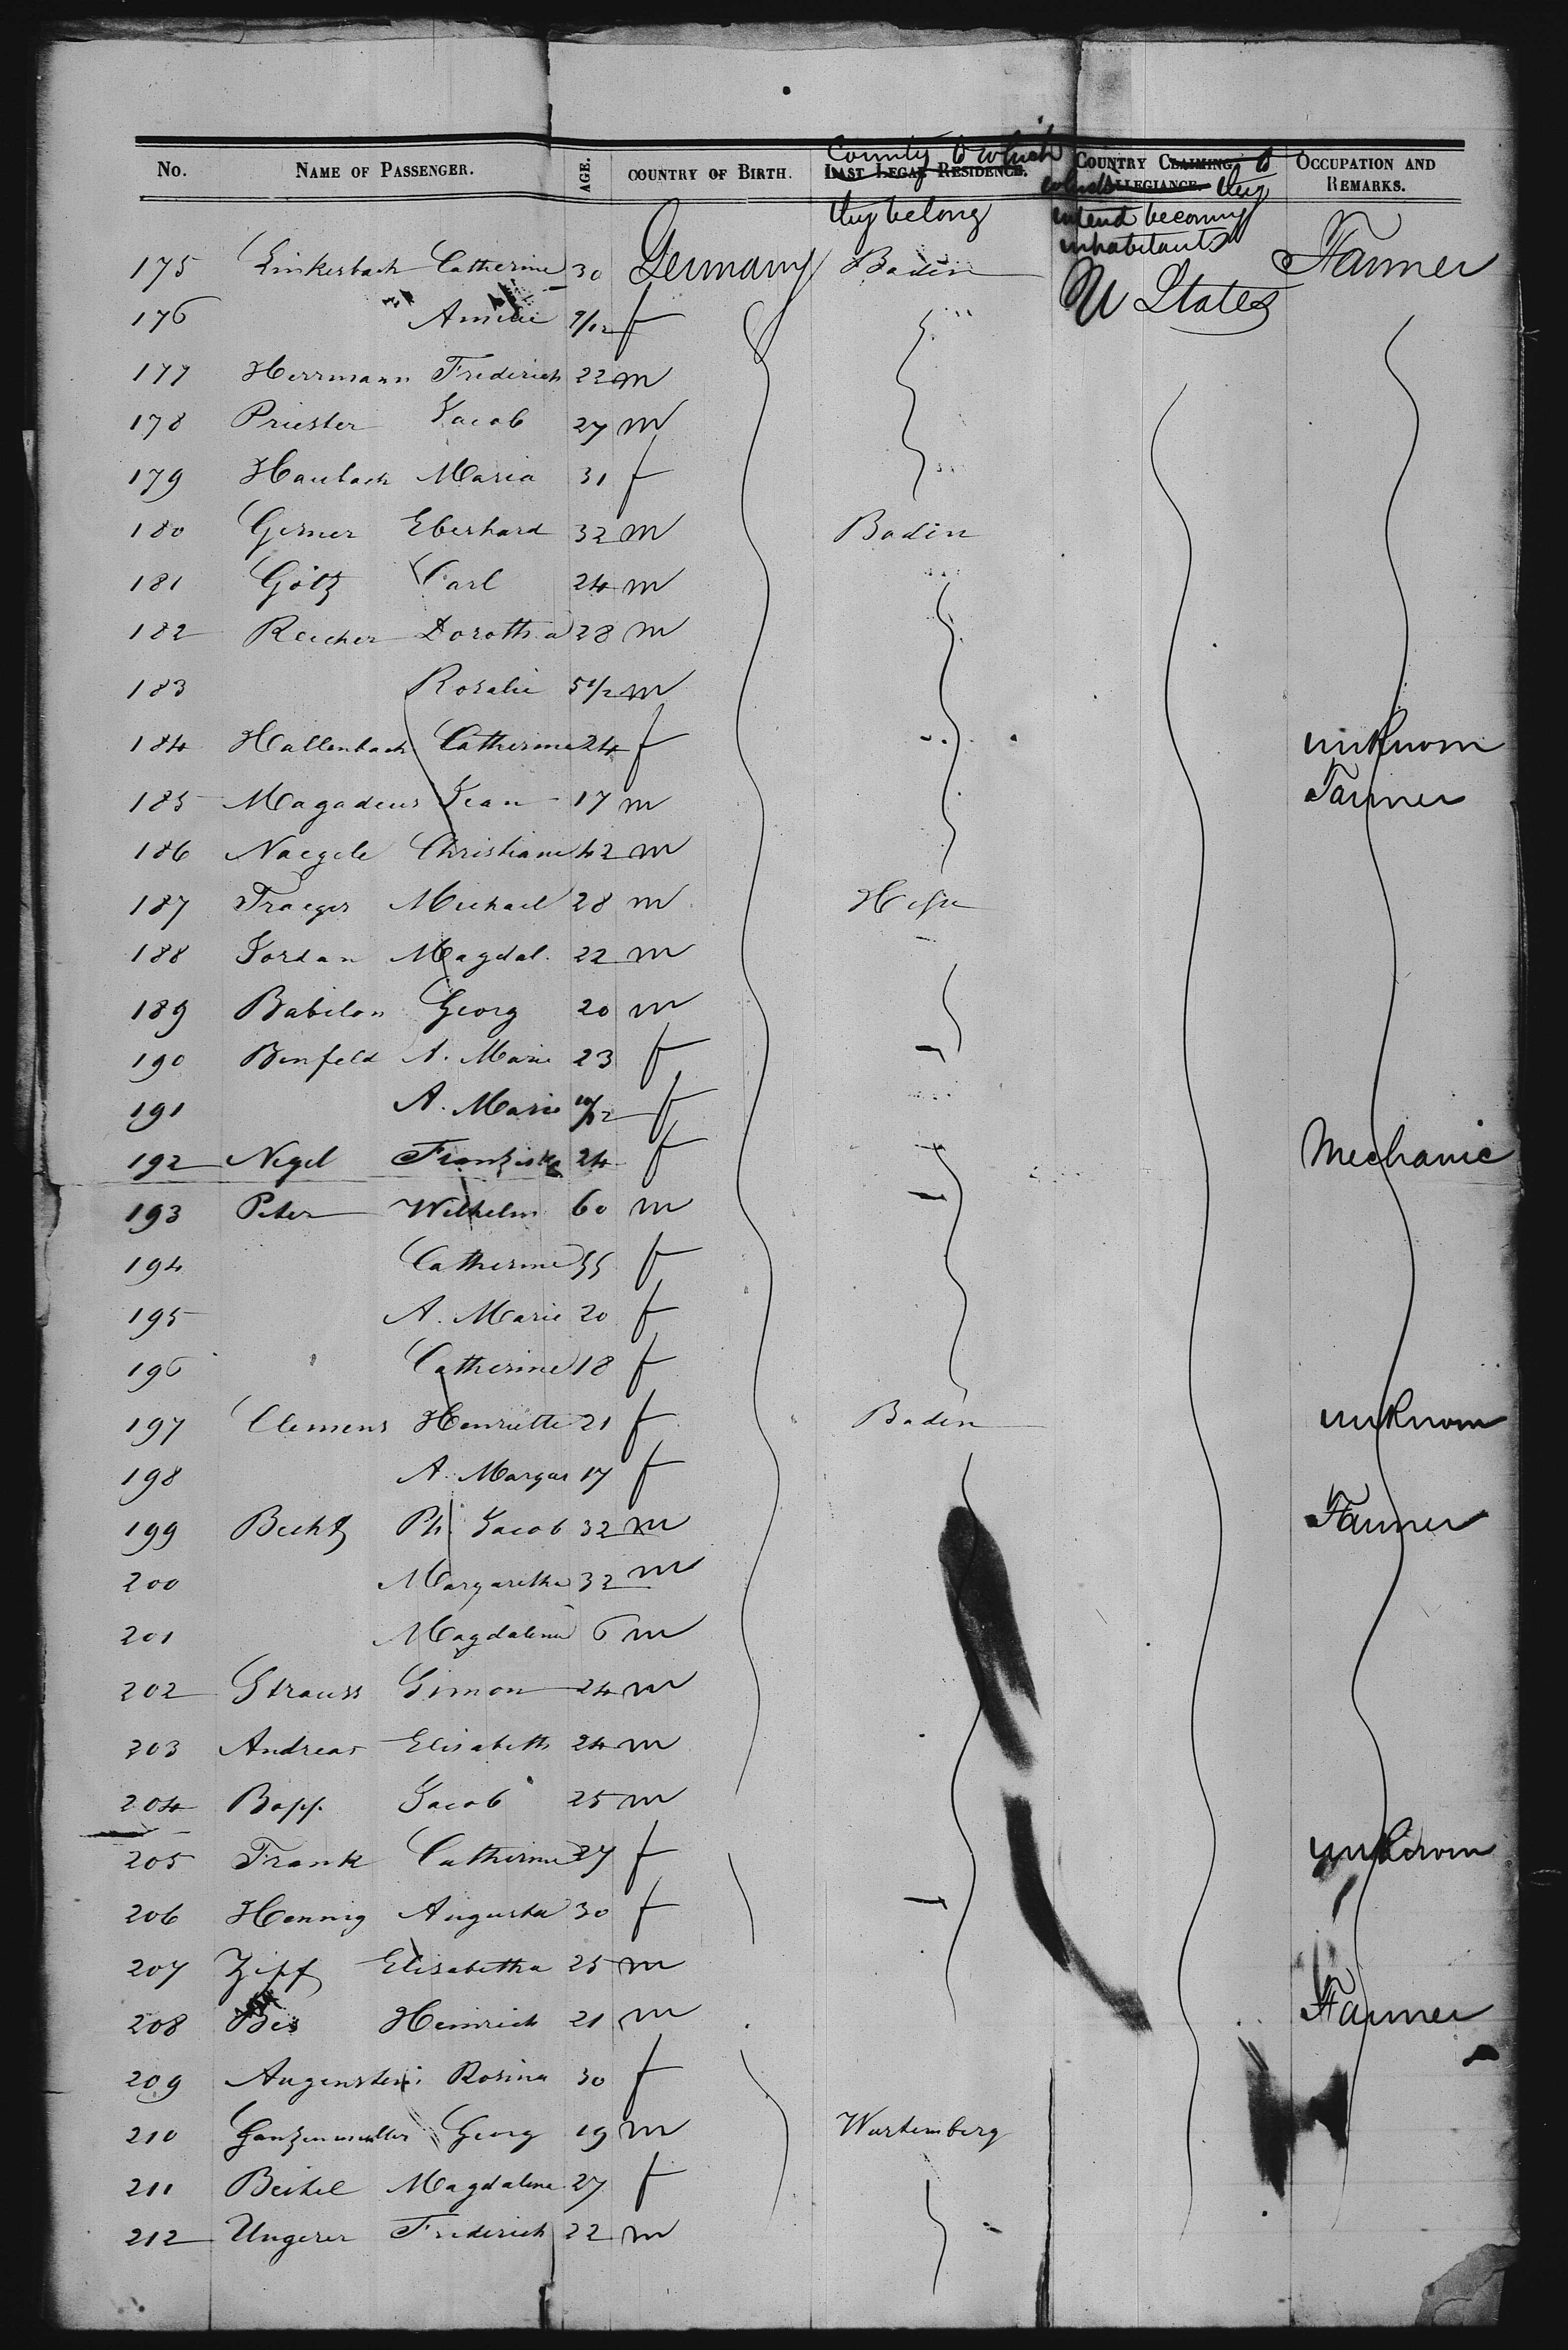 No. NAME OF PASSENGER. AGE. COUNTRY OF BIRTH. LAST LEGAL RESIDENCE. COUNTRY CLAIMING ALLEGIANCE. OCCUPATION AND REMARKS.
County to which they belong
to which they intend becoming inhabitants
175 Linkerbach Catherine 30 Germany Baden U States Farmer
176 Amelie 9/12 f
177 Herrmann Frederich 22 m
178 Priester Jacob 27 m
179 Haubach Maria 31 f
180 Gerner Eberhard 32 m Baden
181 Götz Carl 24 m
182 Reicher Dorothea 28 m
183 Rosalie 5 1/2 m
184 Hallenbach Catherine 24 f unknown
185 Magadeus Jean 17 m Farmer
186 Naegele Christiane 42 m
187 Traeger Michael 28 m Hesse
188 Jordan Magdal. 22 m
189 Babilon Georg 20 m
190 Benfeld A. Marie 23 f
191 A. Marie 10/12 f
192 Negel Franziska 24 f Mechanic
193 Peter Wilhelm 60 m
194 Catherine 55 f
195 A. Marie 20 f
196 Catherine 18 f
197 Clemens Henriette 21 f Baden unknown
198 A. Margar 17 f
199 Becht Ph. Jacob 32 m Farmer
200 Margaretha 32 m
201 Magdalena 6 m
202 Strauss Simon 24 m
203 Andreas Elisabeth 24 m
204 Bopp. Jacob 25 m
205 Frank Catherine 27 f unknown
206 Hennig Augusta 30 f
207 Zipf Elisabetha 25 m
208 Bes Heinrich 21 m Farmer
209 Augenstein Rosina 30 f
210 Ganzenmuller Georg 19 m Wurtemberg
211 Beikel Magdalena 27 f
212 Ungerer Frederich 22 m